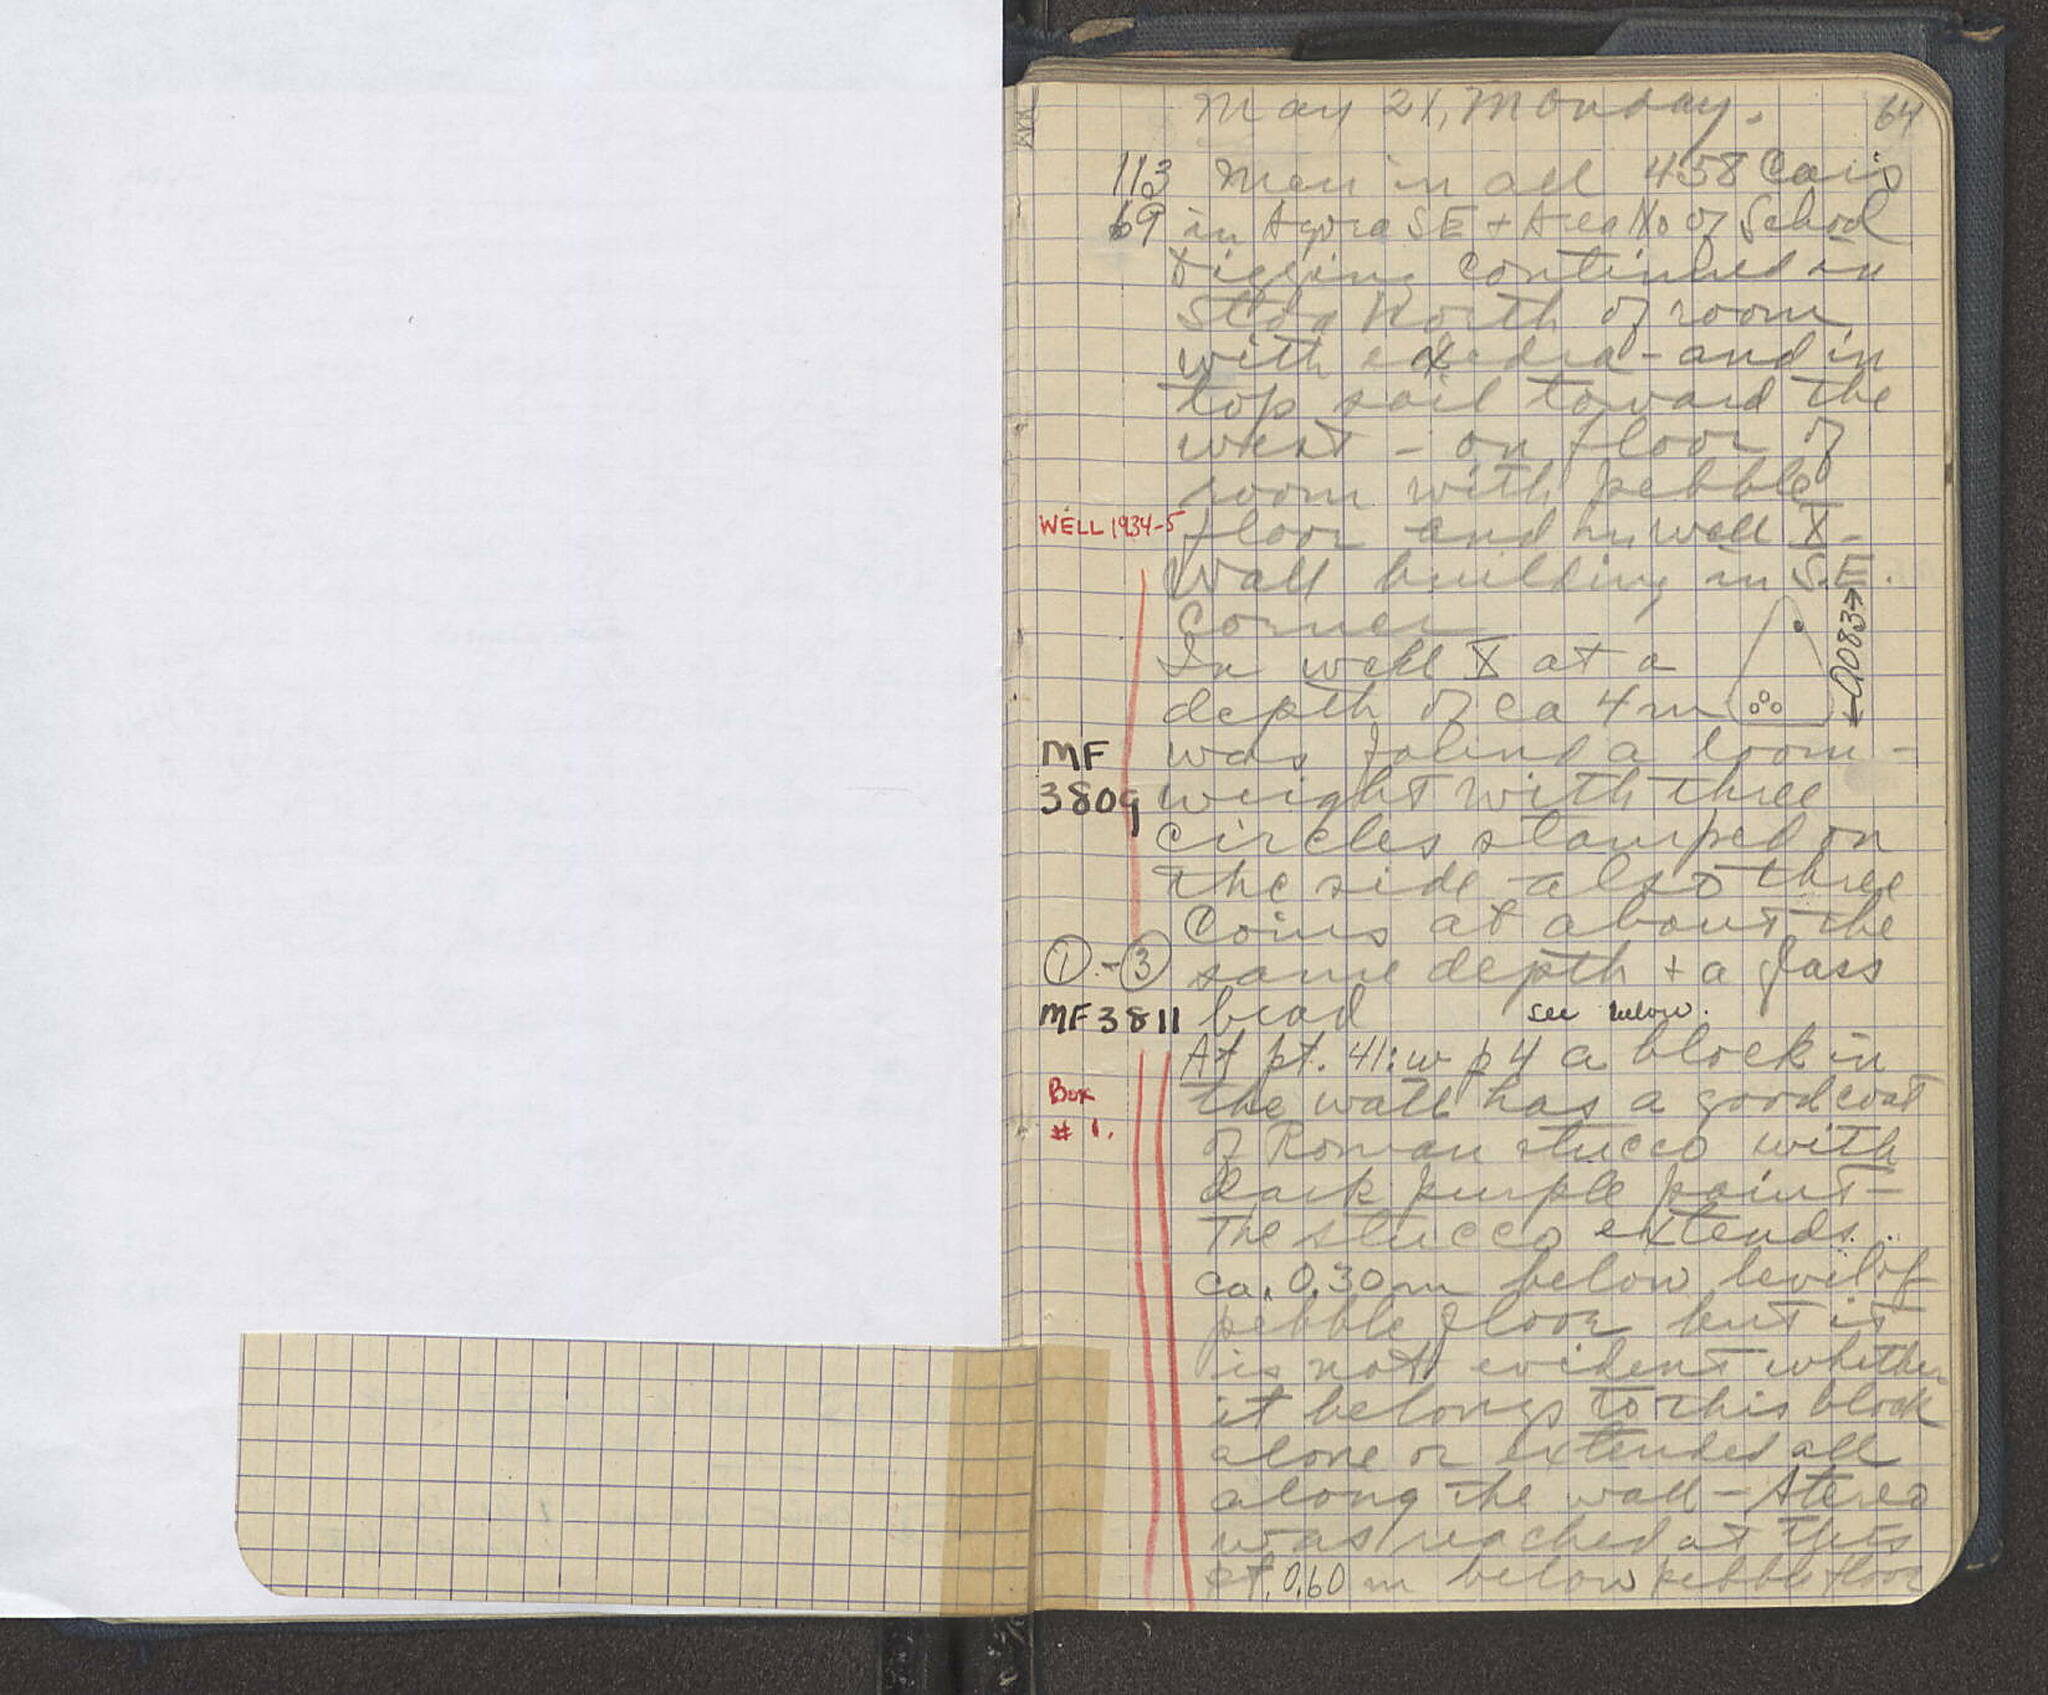 May 21, Monday.
64
113 Men in all 458 Cars
69 in Agora SE + Area No of School
Digging continued in
Stoa North of room
with exedra - and in
top soil toward the
west - on floor of
room with pebble
WELL 1934-5 floor and in well X -
Wall building in S.E.
Corner
0.083
In well X at a
depth of ca 4 m
MF was found a loom-
3809 weight with three
circles stamped on
the side also three
Coins at about the
1 - 3 same depth + a glass
MF 3811 bead see below.
At pt. 41: w p 4 a block in
Box the wall has a good coat
# 1. of Roman stucco with
dark purple paint -
The stucco extends
ca. 0.30 m below level of
pebble floor but it
is not evident whether
it belongs to this block
alone or extended all
along the wall - Stereo
was reached at this
pt. 0.60 m below pebble floor